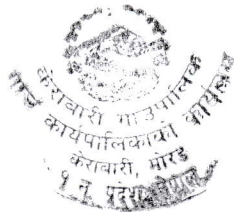 केराबारी गाउँपालिका
कार्यपालिकाको कार्यालय
केराबारी, मोरङ
१ नं. प्रदेश, नेपाल